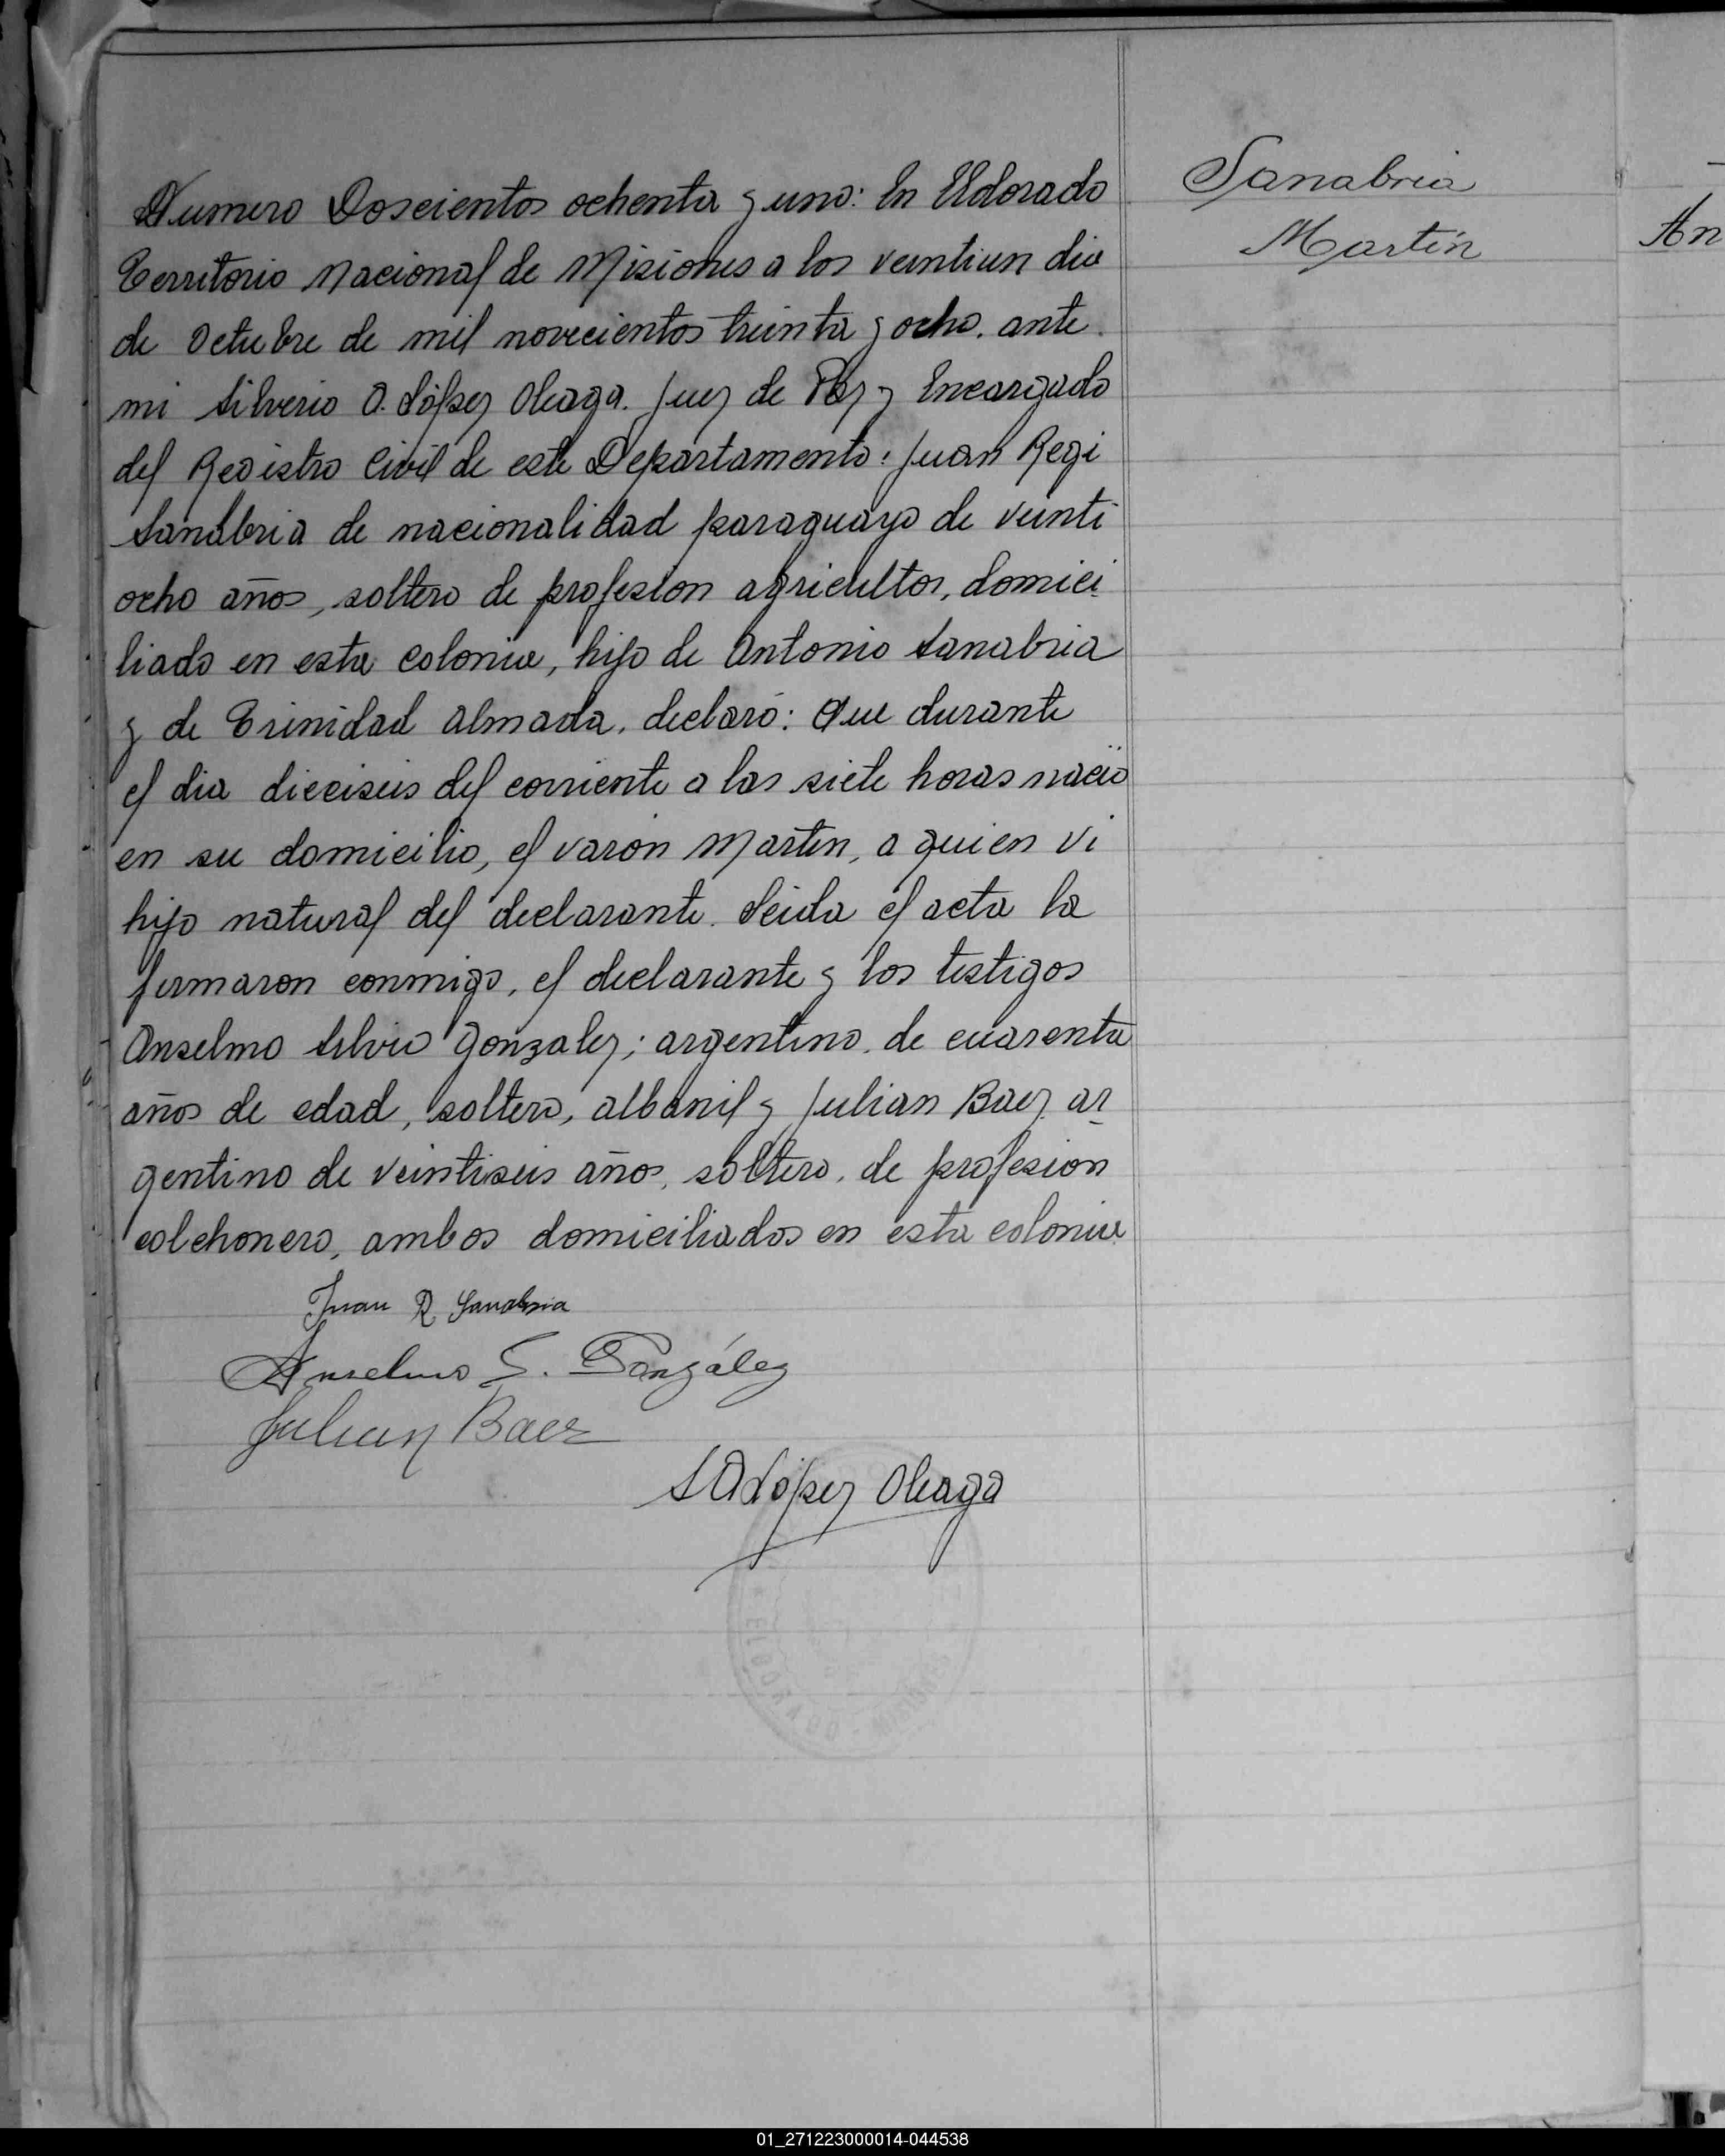 Numero Doscientos ochenta y uno: En Eldorado
Territorio Nacional de Misiones a los veintiun dia
de Octubre de mil novecientos treinta y ocho. ante.
mi Silverio O. López Oleaga. Juez de Paz y Encargado
del Registro Civil de este Departamento: Juan Regi
Sanabria de nacionalidad paraguayo de veinti
ocho años, soltero de profesion agricultor, domici
liado en esta colonia, hijo de Antonio Sanabria
y de Trinidad Almada, declaró: Que durante
el dia dieciseis del corriente a las siete horas nació
en su domicilio, el varon Martin, a quien vi
hijo natural del declarante. Leida el acta la
firmaron conmigo, el declarante y los testigos
Anselmo Silvio Gonzalez; argentino, de cuarenta
años de edad, soltero, albanil y Julian Baez ar
gentino de veintiseis años, soltero, de profesion
colchonero, ambos domiciliados en esta colonia
Juan R Sanabria
Anselmo S. González
Julian Baez
S O López Oleaga
ELDORADO - MISIONES
Sanabria
Martín
An
01_271223000014-044538